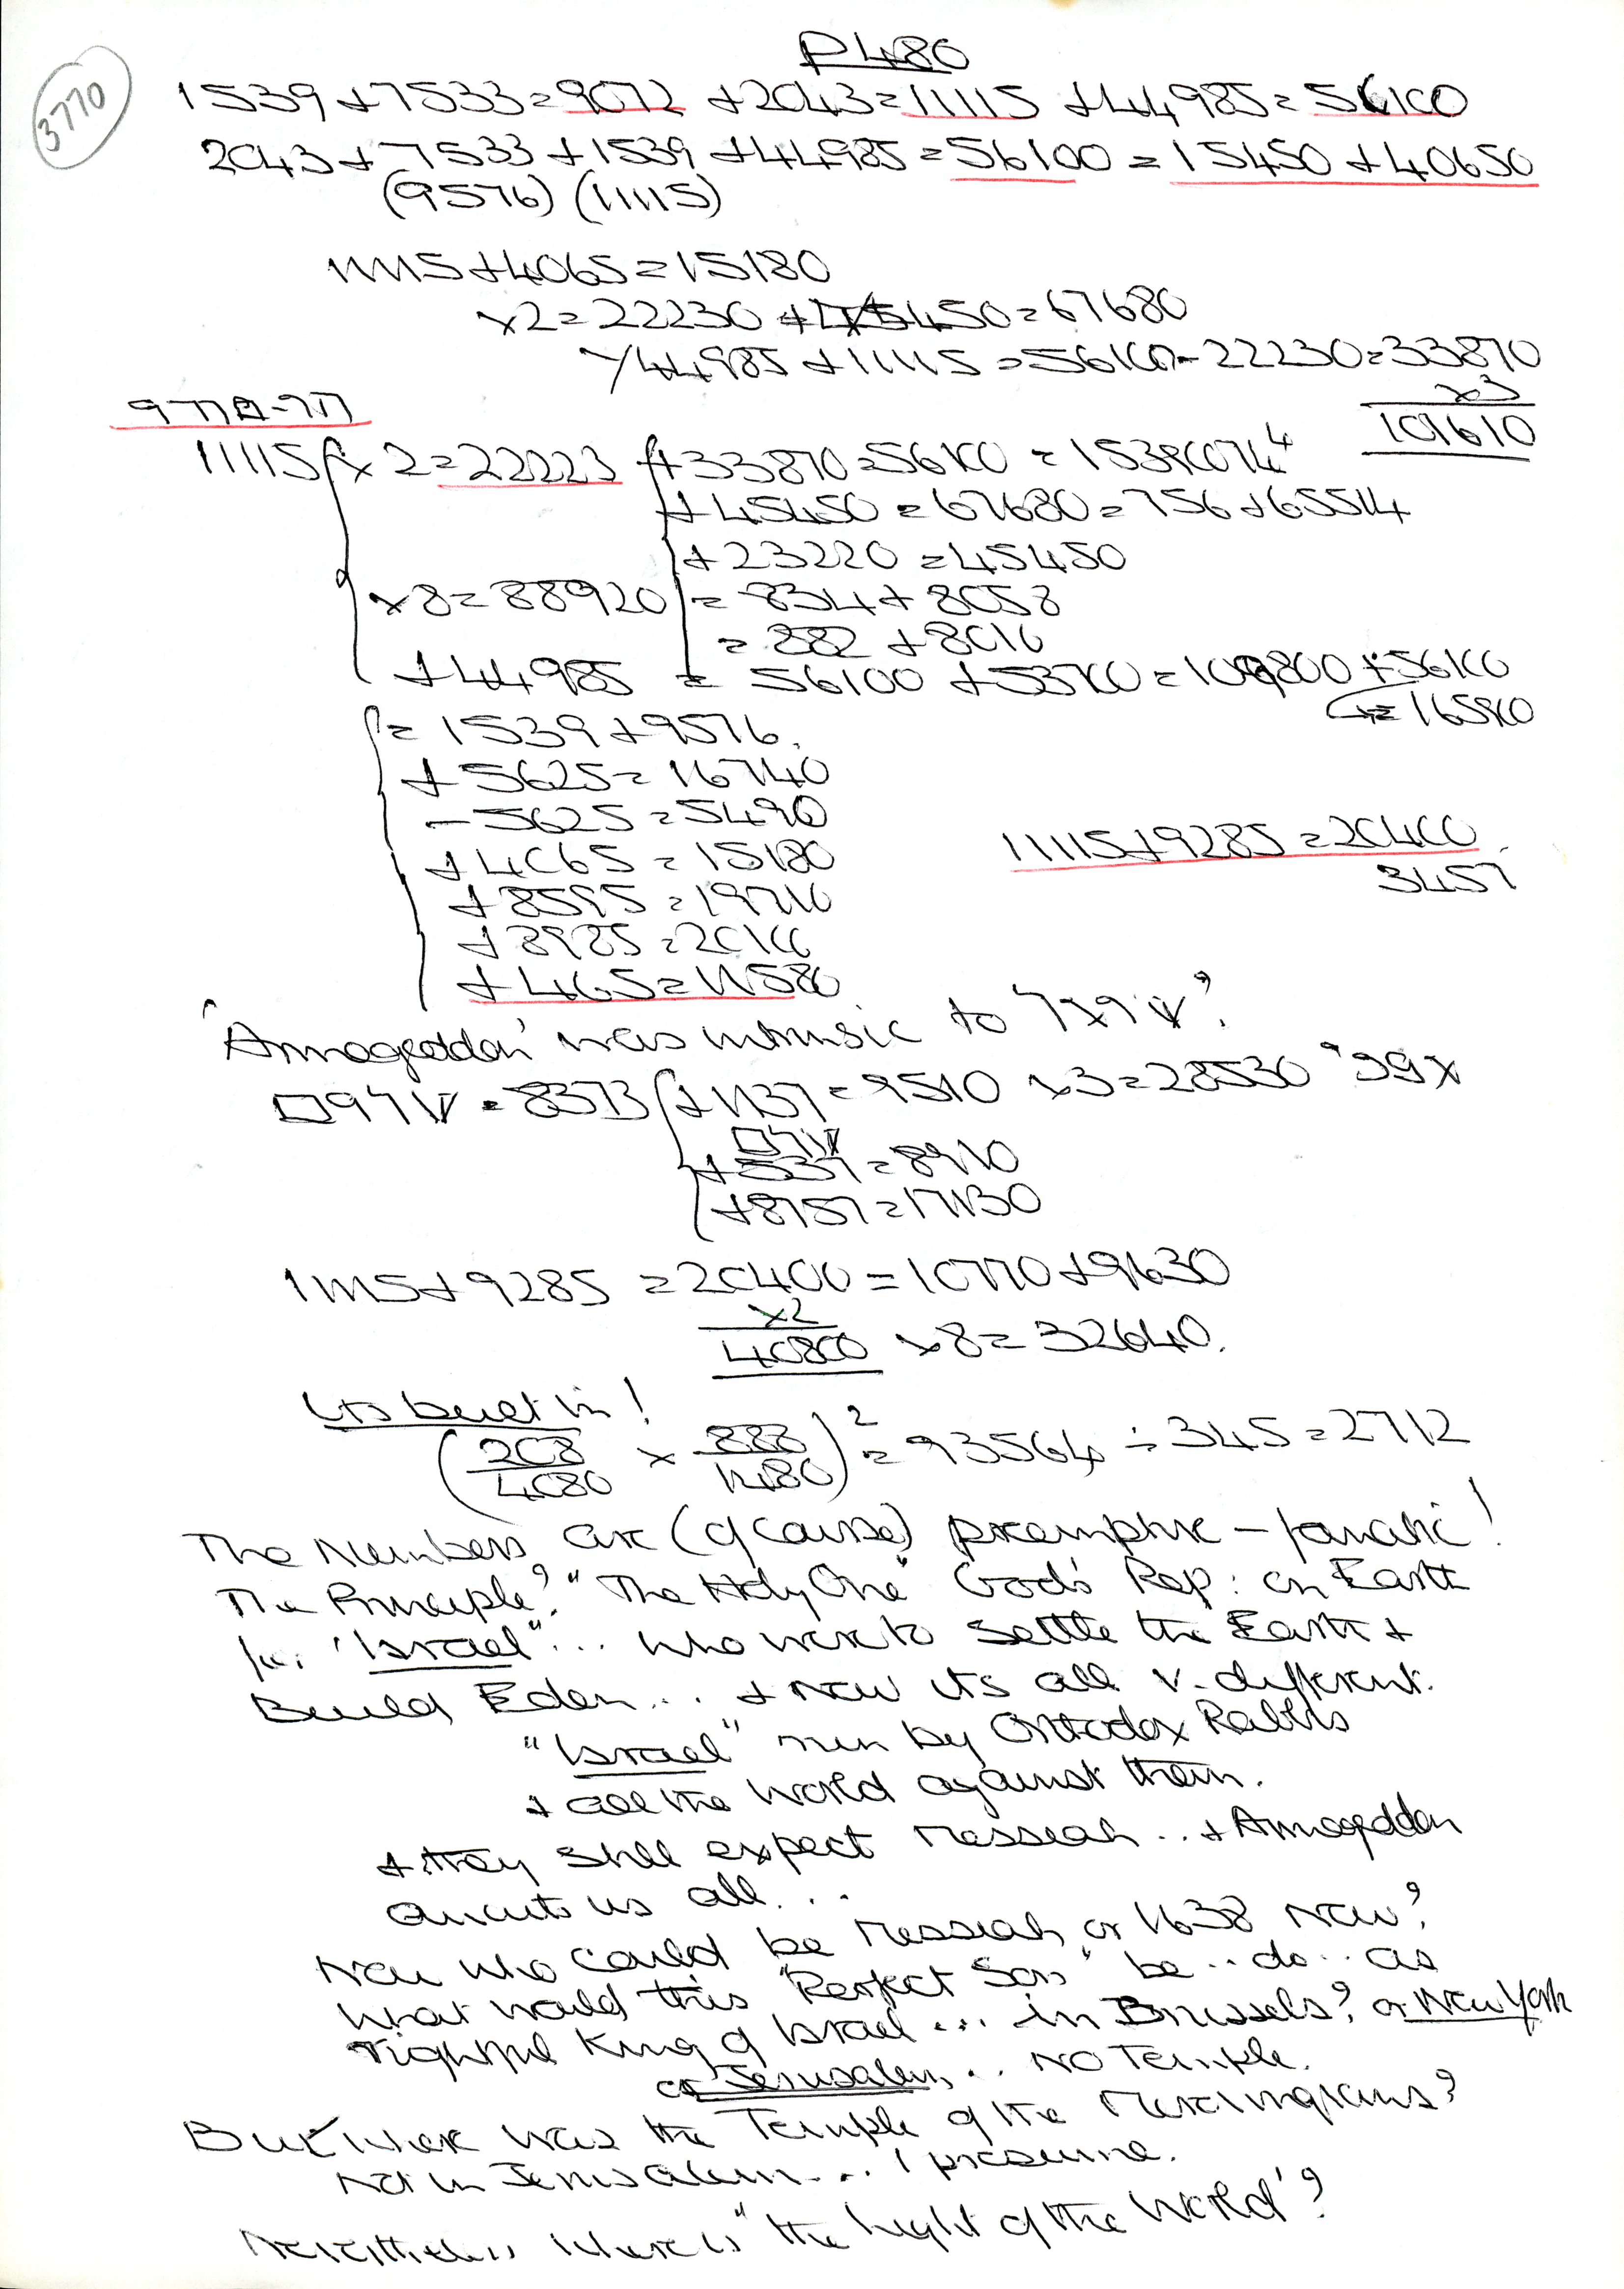 P480
3770
1539 + 7533 = 9072 + 2043 = 11115 + 44985 = 56100
2043 + 7533 + 1539 + 44985 = 56100 = 15450 + 40650
(9576) (11115)
11115 + 4065 = 15180
x2 = 22230 + 45450 = 67680
44985 + 11115 = 56100 - 22230 = 33870
x3
101610
11115 x 2 = 22223 + 33870 = 56100 =
+ 45450 = 67680 = 756 + 65514
+ 23220 = 45450
x8 = 88920 = 834 + 8058
= 882 + 8010
+ 44985 = 56100 + 53700 = 109800 + 56100
= 165900
= 1539 + 9576.
+ 5625 = 16740
- 5625 = 5490
+ 4065 = 15180
+ 8595 = 19710
+ 8985 = 20100
+ 465 = 11580
11115 + 9285 = 20400
3457
'Armageddon' was intrinsic to
= 8373 + 1137 = 9510 x3 = 28530
+ 537 = 8910
+ 8757 = 17130
11115 + 9285 = 20400 = 10770 + 9630
x2
40800 x8 = 32640.
Its built in!
(208/4080 x 888/1480)² = 93564 ÷ 345 = 2712
The Numbers are (of course) preemptive - fanatic!
The Principle? "The Holy One" God's Rep: on Earth
for "Israel"... who were to settle the Earth +
Build Eden... + now its all v. different.
"Israel" run by Orthodox Rabbis
+ all the world against them.
+ they still expect Messiah.. + Armageddon
awaits us all...
Now who could be Messiah or 1638 now?
What would this "Perfect Son" be.. do.. as
rightful King of Israel... in Brussels? or New York
or Jerusalem... NO Temple.
But where was the Temple of the Merovingians?
Not in Jerusalem... I presume.
Nevertheless where is "the Light of the World"?